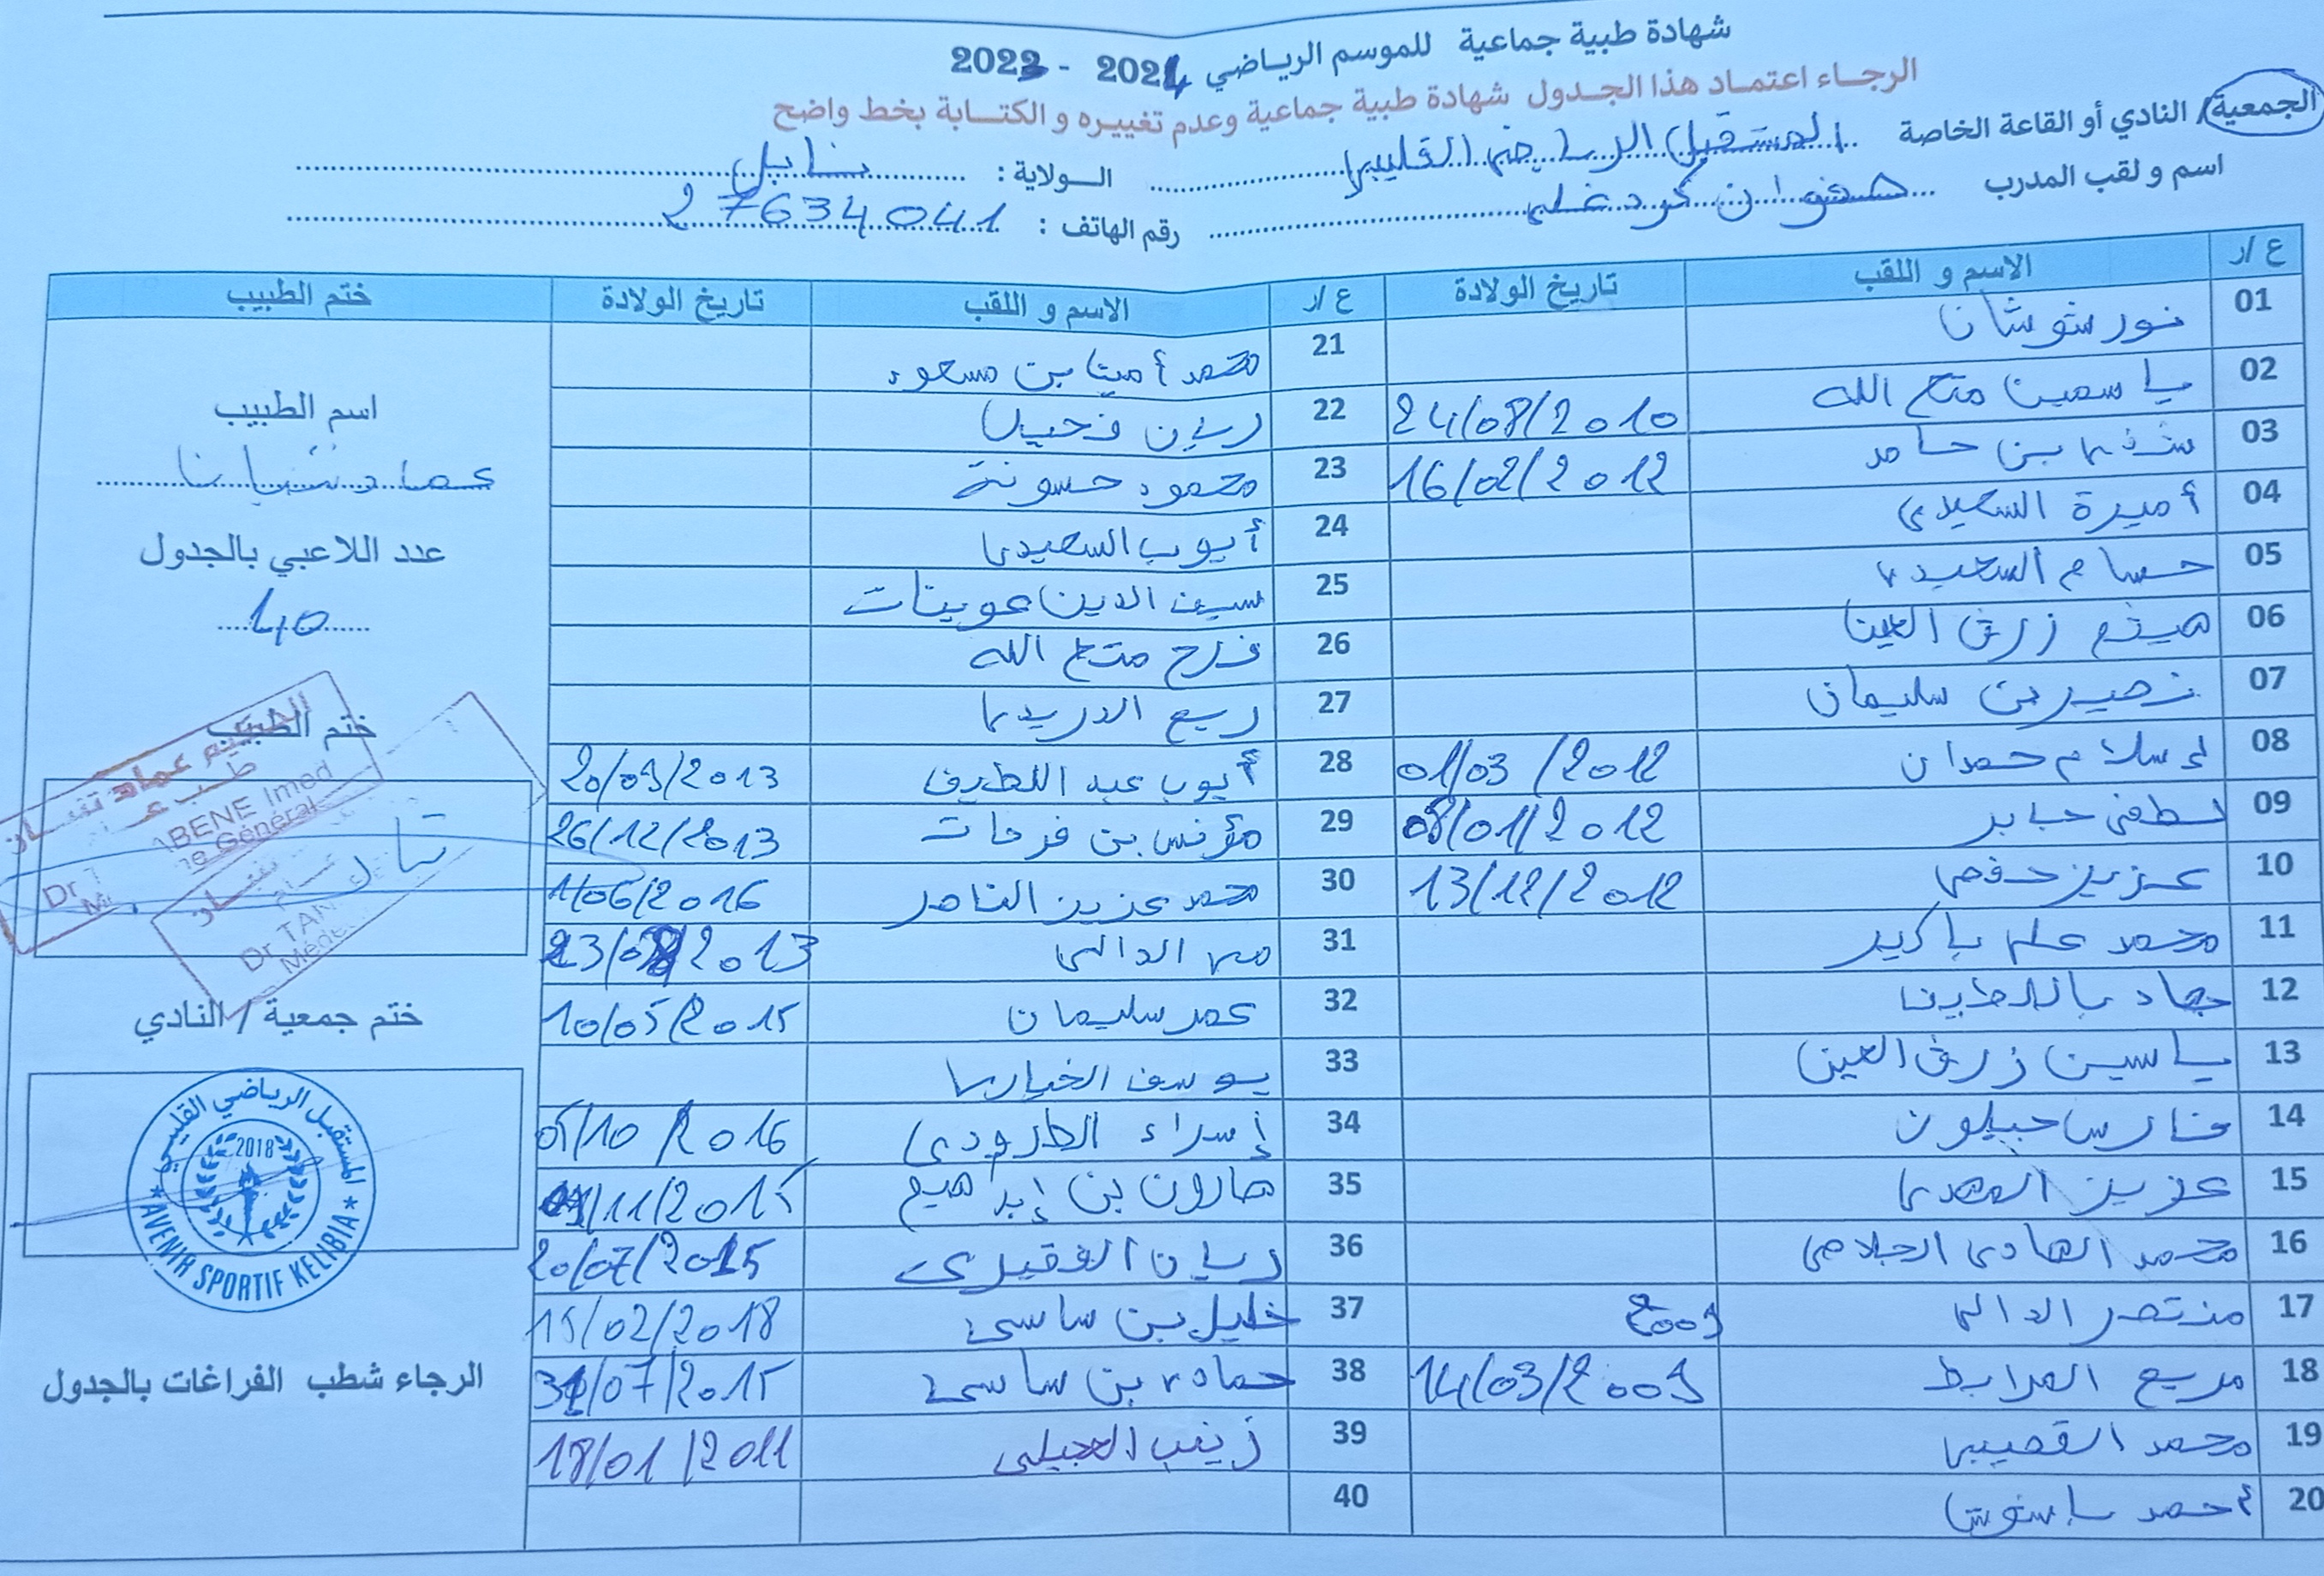 شهادة طبية جماعية للموسم الرياضي 2024 - 2023
الرجاء اعتماد هذا الجدول شهادة طبية جماعية وعدم تغييره و الكتابة بخط واضح
الجمعية/ النادي أو القاعة الخاصة المستقبل الرياضي القليبي الولاية : نابل
اسم و لقب المدرب صفوان كردغلي رقم الهاتف : 27634041
ع /ر الاسم و اللقب تاريخ الولادة ع /ر الاسم و اللقب تاريخ الولادة ختم الطبيب
01 نور شوشان
02 ياسمين متع الله 24/08/2010
03 بن حامد 16/02/2012
04 أميرة السعيدي
05 حسام السعيدي
06 هيثم زرق العين
07 نصير بن سليمان
08 إسلام حمدان 01/03/2012
09 لطفي جابر 08/01/2012
10 عزيز حفصي 13/12/2012
11 محمد علي باكير
12 جهاد باللطيف
13 ياسين زرق العين
14 فارس جبلون
15 عزيز المهدي
16 محمد الهادي الجلاصي
17 منتصر الدالي 2009
18 مريم المرابط 14/03/2009
19 محمد القصيبي
20 أحمد
21 محمد أمين بن مسعود
22 ريان فحيل
23 محمود حسونة
24 أيوب السعيدي
25 سيف الدين عوينات
26 فرح متع الله
27 ربيع الدريدي
28 أيوب عبد اللطيف 20/09/2013
29 مؤنس بن فرحات 26/12/2013
30 محمد عزيز الناصر 1/06/2016
31 مي الدالي 2013
32 عمر سليمان 10/05/2015
33 يوسف الخياري
34 إسراء الطرودي 05/10/2016
35 هارون بن إبراهيم 11/2015
36 ريان الفقيري 20/07/2015
37 خليل بن ساسي 15/02/2018
38 حمادي بن ساسي 31/07/2015
39 زينب العجيلي 18/01/2011
40
اسم الطبيب
عماد تبان
عدد اللاعبي بالجدول
40
ختم الطبيب
الحكيم عماد
طب عام
ABENE Imed
Général
Dr TAN
ختم جمعية / النادي
المستقبل الرياضي القليبي
2018
AVENIR SPORTIF KELIBIA
الرجاء شطب الفراغات بالجدول